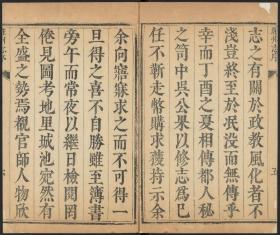 志之有關於政教風化者不
淺豈終至於泯没而無傳乎
幸而丁酉之夏相傳都人秘
之笥中吳公果以修志爲已
任不靳走幣購求獲持示余
余向寤寐求之而不可得一
旦得之喜不自勝雖至簿書
旁午而當夜以繼日檢閱罔
倦見圖考地里城池宛然有
全盛之勢焉觀官師人物欣